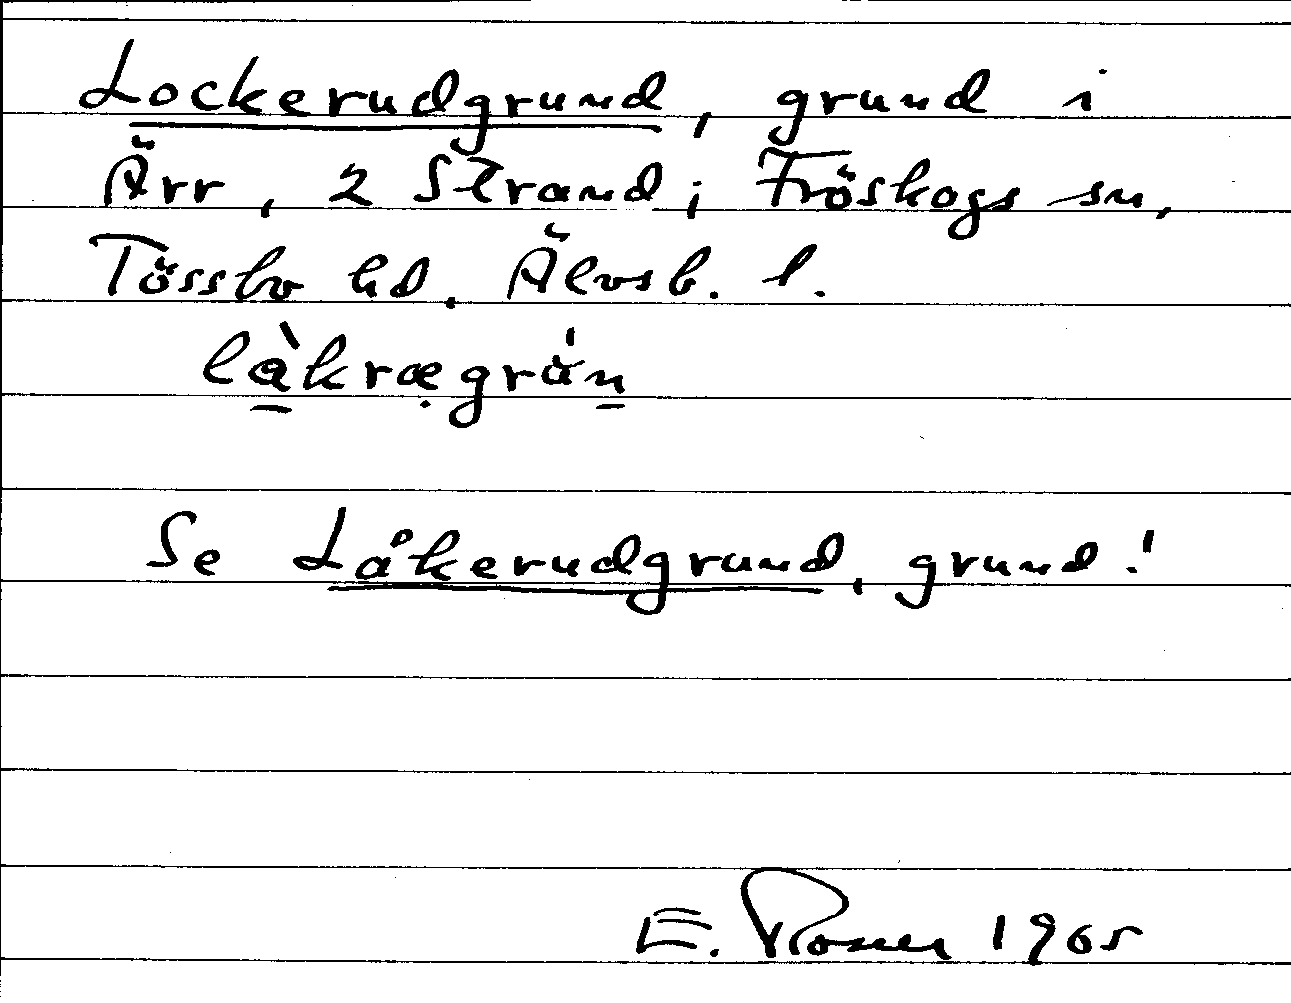 Lockerudgrund, grund i
Ärr, 2 Strand; Fröskogs sn,
Tössbo hd. Älvsb. l.
làkrægrún
Se Låkerudgrund, grund!
E. Rosen 1965